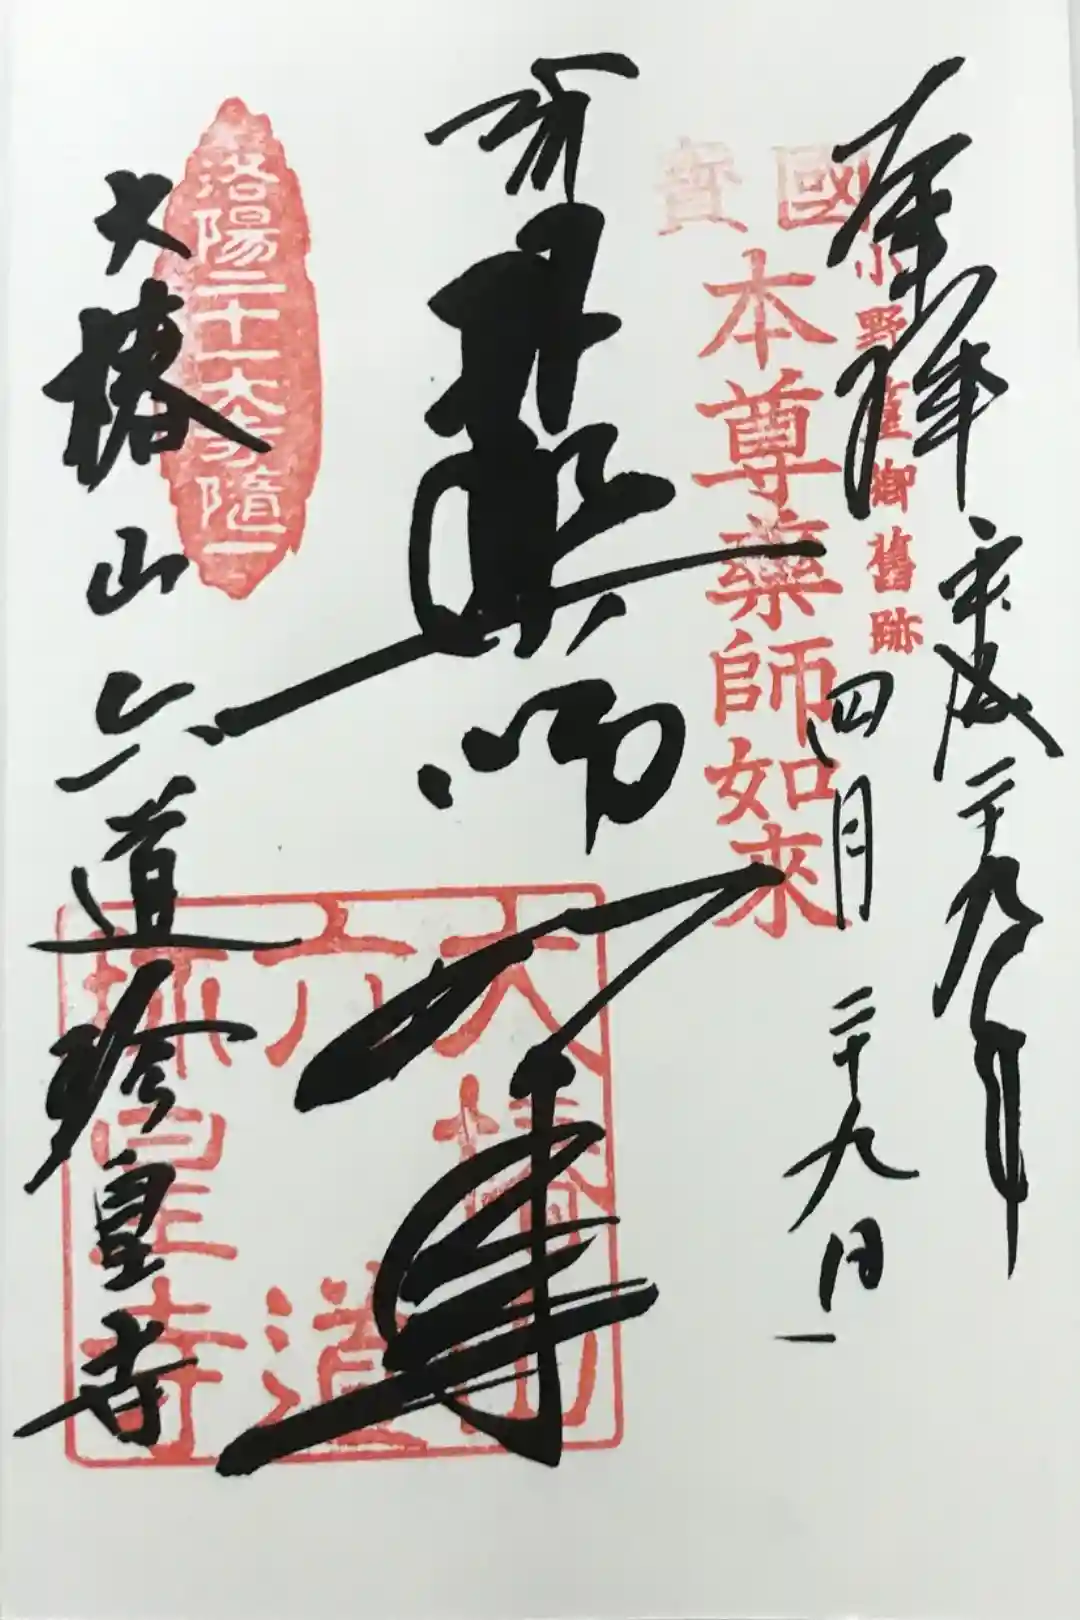 奉拝
平成二十九年
四月二十九日
小野篁卿舊跡
國寶
本尊藥師如來
醫王尊
洛陽二十一大寺随一
大椿山
六道
珍皇寺
大椿山六道珍皇寺